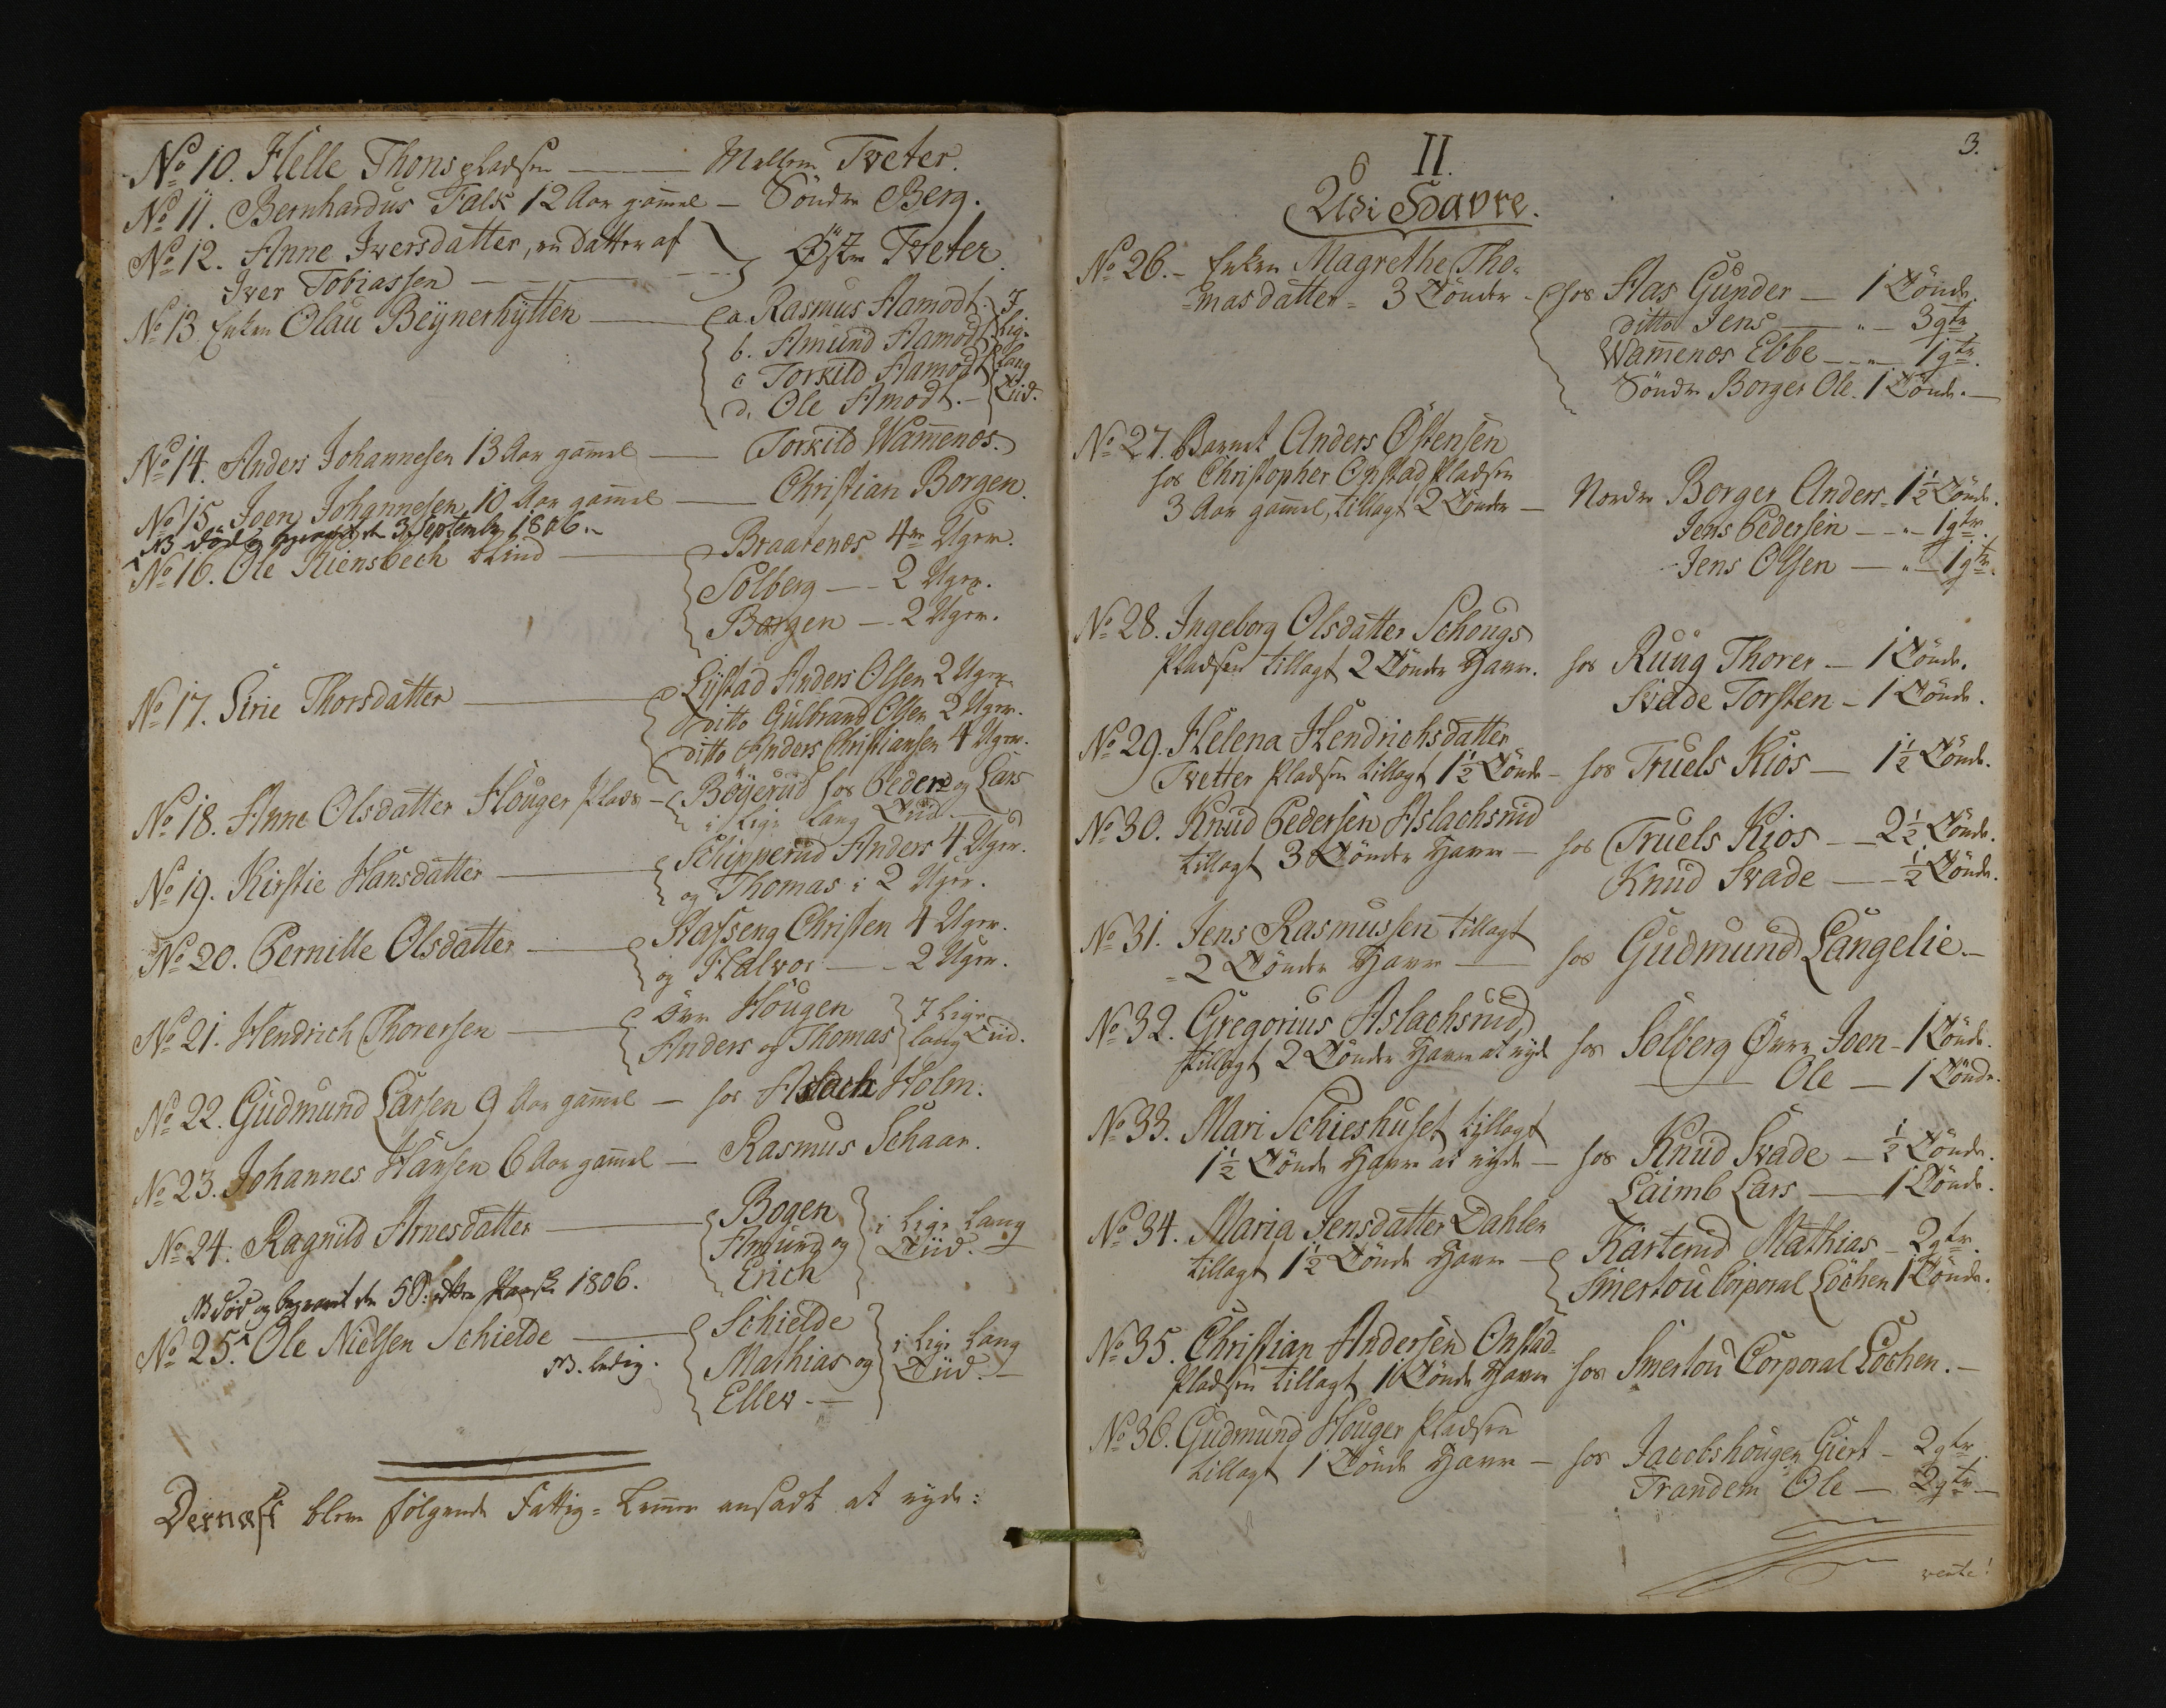 No 10. Helle Thonspladsen — Mellem Tveter.
No 11. Bernhardus Falk 12 Aar gam̄el — Söndre Berg.
No 12. Anne Iversdatter, en datter af
Iver Tobiassen — Östre Tveter.
No 13. Enken Olau Beÿnerhÿtten — a. Rasmus Aamodt. I
b. Amund Aamodt lige
c Torkild Aamodt lang
d. Ole Amodt. — Tiid.
No 14. Anders Johannesen 13 Aar gam̄el — Torkild Wam̄enos.
No 15. Joen Johannesen 10 Aar gam̄el — Christian Borgen.
NB död og begravet d 3 Septembr 1806.
No 16. Ole Kiensbech blind — Braatenes 4re Uger.
Solberg — 2 Uger.
Borgen — 2 Uger.
No 17. Sirie Thorsdatter — Lÿstad Anders Olsen 2 Uger.
ditto Gulbrand Olsen 2 Uger.
ditto Anders Christiansen 4 Uger.
No 18. Anne Olsdatter Houger plads — Böÿerud hos Peder og Lars
i lige lang Tiid.
No 19. Kirstie Hansdatter — Schipperud Anders 4 Uger.
og Thomas i 2 Uger.
No 20. Pernille Olsdatter — Hasseng Christen 4 Uger.
og Halvor — 2 Uger.
No 21. Hendrich Thorersen — övre Hougen I lige
Anders og Thomas lang Tiid.
No 22. Gudmund Larsen 9 Aar gam̄el — hos Aslach Holm.
No 23. Johannes Hansen 6 Aar gam̄el — Rasmus Schaar.
No 24. Ragnild Arnesdatter — Bogen i lige lang
Amund og Tiid. —
Erich
NB död og begravet den 1806.
No 25. Ole Nielsen Schielde — Schielde i lige lang
NB. ledig. Mathias og Tiid. —
Ellev. —
Dernæst bleve fölgende Fattig-Lem̄er ansadt at nyde:
3.
II.
Udi Havre.
No 26. — Enken Magrethe Tho-
-masdatter - 3 Tönder — hos Aas Gunder — 1 Tönde.
ditto Jens — " — 3 qtr.
Wam̄enos Ebbe — " — 1 qtr.
Söndre Borger Ole. 1 Tönde. —
No 27. Barnet Anders Östensen
hos Christopher Onstad pladsen
3 Aar gam̄el, tillagt 2 Tönder — Nordre Borger Anders - 1½ Tönde.
Jens Pedersen — " — 1 qtr.
Jens Olsen — " — 1 qtr.
No 28. Ingeborg Olsdatter Schougs
pladsen tillagt 2 Tönder Havre. hos Ruug Thorer — 1 Tönde.
Svade Torsten — 1 Tönde.
No 29. Helena Hendrichsdatter
Tvetter pladsen tillagt 1½ Tönde — hos Truels Kios — 1½ Tönde.
No 30. Knud Pedersen Aslachsrud
tillagt 3 Tönder Havre — hos Truels Kios — 2½ Tönde.
Knud Svade — ½ Tönde.
No 31. Jens Rasmussen tillagt
- 2 Tönder Havre — hos Gudmund Langelie. —
No 32. Gregorius Aslachsrud
tillagt 2 Tönder Havre at nyde hos Solberg Övre Joen - 1 Tönde.
Ole — 1 Tönde.
No 33. Mari Schieshuset tillagt
1½ Tönde Havre at nyde — hos Knud Svade — ½ Tönde.
Laimb Lars — 1 Tönde.
No 34. Maria Jensdatter Dahlen
tillagt 1½ Tönde Havre — Karterud Mathias — 2 qtr.
Smertou Corporal Löchen 1 Tönde.
No 35. Christian Andersen Onstad-
pladsen tillagt 1 Tönde Havre hos Smertou Corporal Löchen. —
No 36. Gudmund Houger pladsen
tillagt 1 Tönde Havre — hos Jacobshougen Giert — 2 qtr.
Trandem Ole — 2 qtr. —
verte!